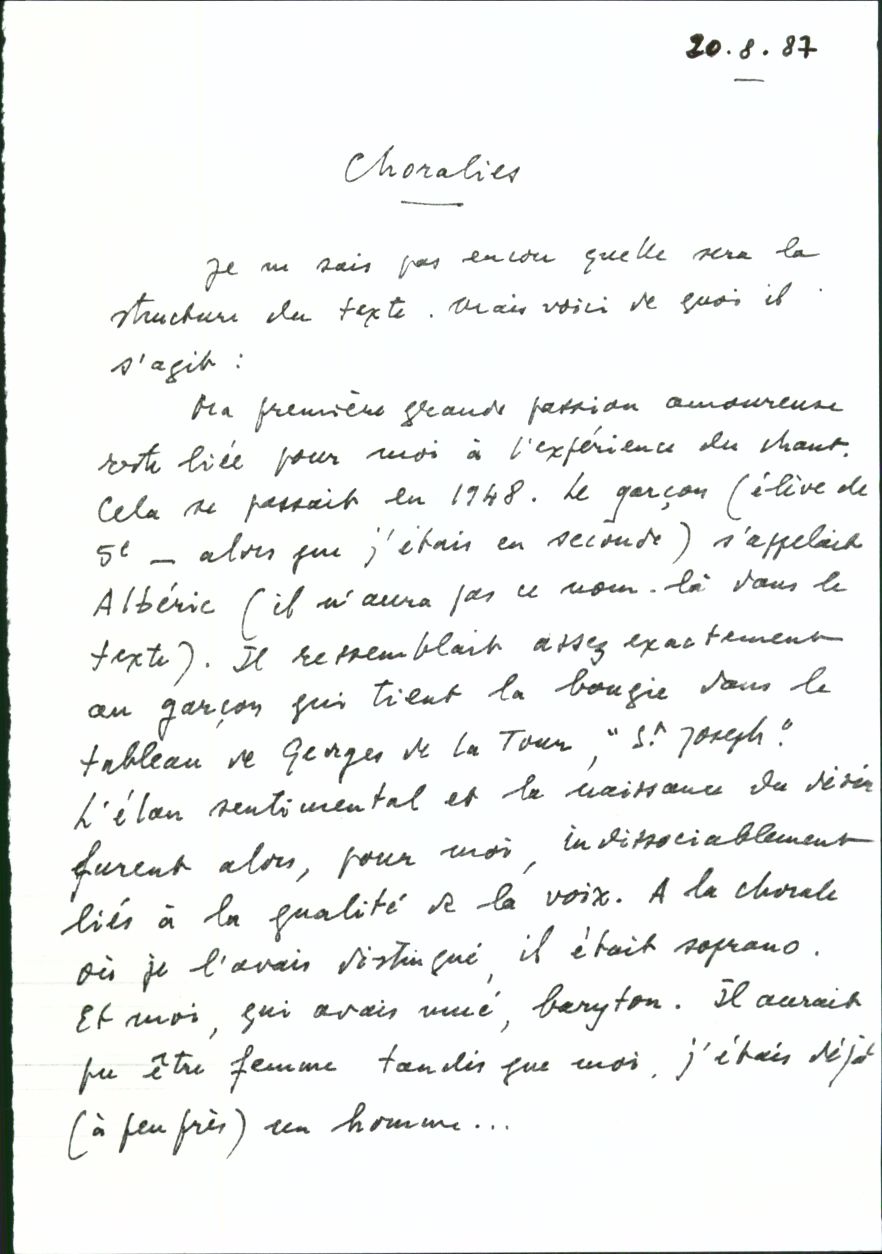 20.8.87
Choralies
Je ne sais pas encore quelle sera la
structure du texte. Mais voici de quoi il
s'agit :
Ma première grande passion amoureuse
reste liée pour moi à l'expérience du chant.
Cela se passait en 1948. Le garçon (élève de
5e — alors que j'étais en seconde) s'appelait
Albéric (il n'aura pas ce nom-là dans le
texte). Il ressemblait assez exactement
au garçon qui tient la bougie dans le
tableau de Georges de La Tour, "St Joseph".
L'élan sentimental et la naissance du désir
furent alors, pour moi, indissociablement
liés à la qualité de la voix. A la chorale
où je l'avais distingué, il était soprano.
Et moi, qui avais mué, baryton. Il aurait
pu être femme tandis que moi, j'étais déjà
(à peu près) un homme...